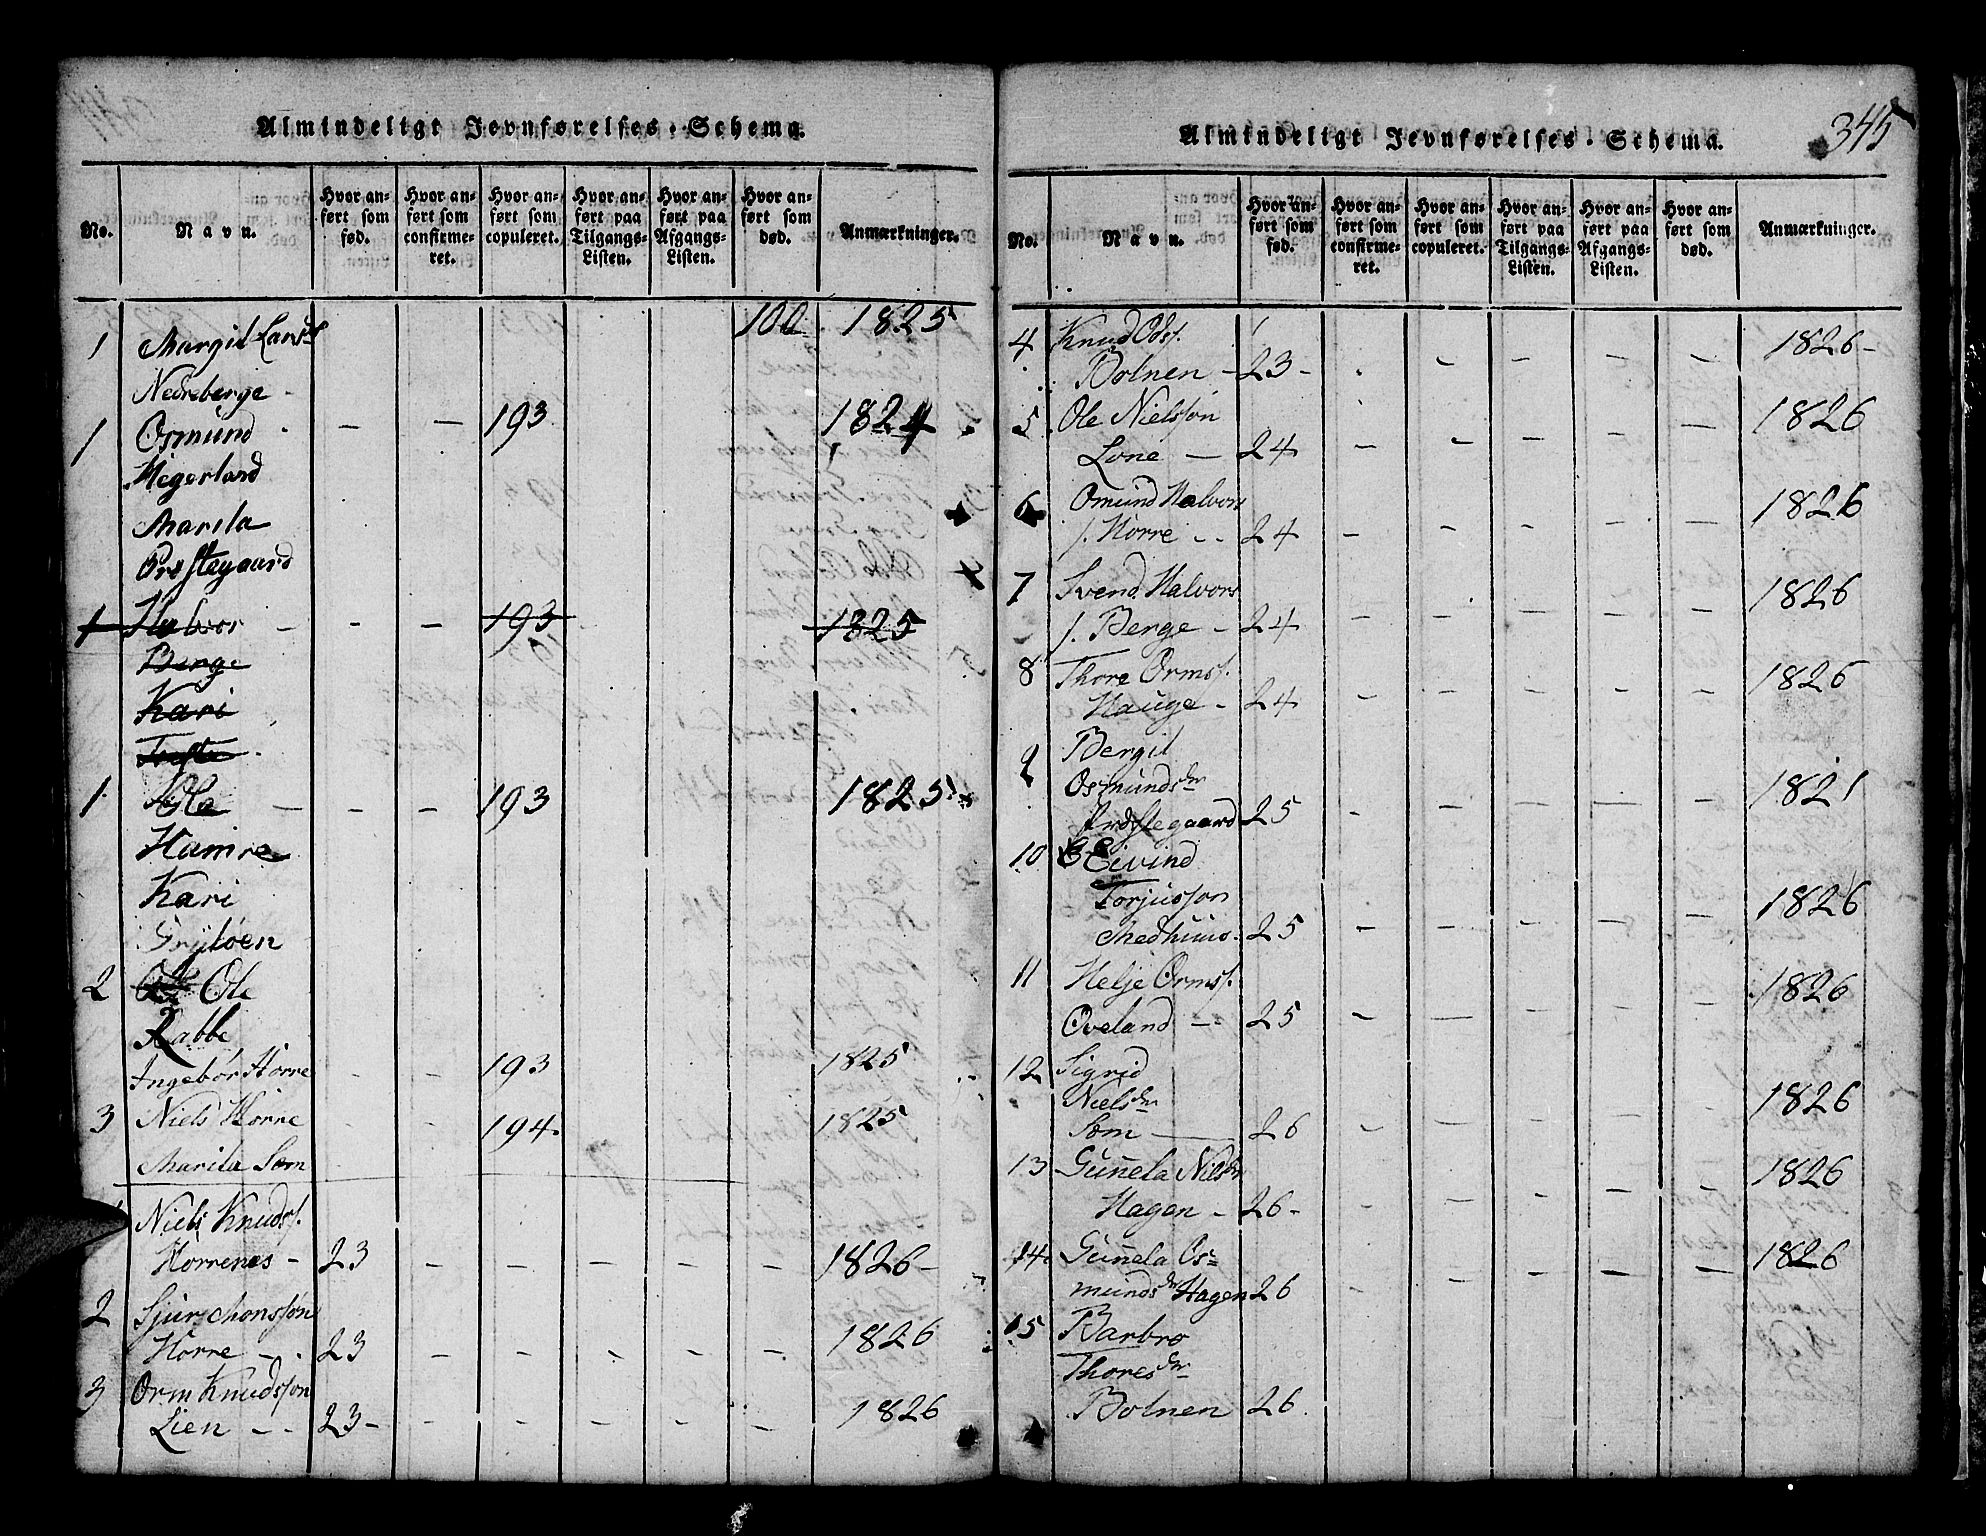 Almindeligt Jevnførelses-Schema.
No. Navn. Hvor anført som fød. Hvor anført som confirmeret. Hvor anført som copuleret. Hvor anført paa Tilgangs-Listen. Hvor anført paa Afgangs-Listen. Hvor anført som død. Anmærkninger.
1 Margit Lars 100 1825
Nedreberge -
1 Osmund - - 193 1824
Megerland
Marita
Præstegaard
1 Halvor - - - 193 1825
Berge
Kari
1 Ole - - - 193 1825
Hamre
Kari
2 Ole
Rabbe
Ingebor Hørre - - 193 1825
3 Niels Hørre - - 194 1825
Marita Søm
1 Niels Knuds.
Hørrenes - 23 - - - - - 1826 -
2 Sjur Monsson
Hørre - 23 - - - - - 1826
3 Orm Knudsson
Lien - - 23 - - - - - - 1826
Almindeligt Jevnførelses-Schema.
345
No. Navn. Hvor anført som fød. Hvor anført som confirmeret. Hvor anført som copuleret. Hvor anført paa Tilgangs-Listen. Hvor anført paa Afgangs-Listen. Hvor anført som død. Anmærkninger.
4 Knud Ods. 1826 -
Bolnen - 23 - - - - - -
5 Ole Nielsson 1826
Lone - 24 - - - - -
6 Omund Halvors 1826
s. Hørre - - 24 - - - - -
7 Svend Halvors 1826
s. Berge - 24 - - - - -
8 Thore Orms. 1826
Hauge - 24 - - - - -
9 Bergit
Osmundsdr 1821
Præstegaard 25 - - - - -
10 Eivind
Torjusson 1826
Medhuus. 25 - - - - -
11 Helje Orms. 1826
Oveland - - 25 - - - - -
12 Sigrid
Nielsdr 1826
Søm - 26 - - - - -
13 Guñela Nielsdr 1826
Hagen - 26 - - - - -
14 Guñela Os= 1826
mundsdr Hagen 26 - - - - -
15 Barbro
Thoresdr
Bolnen 26.